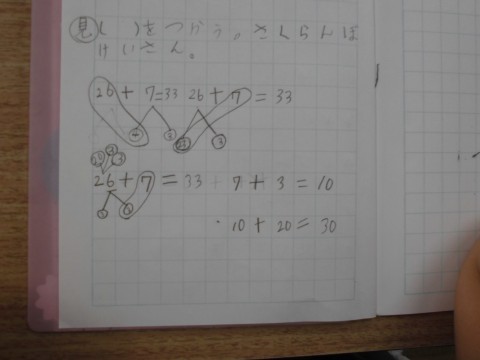 見 ( )をつかう。さくらんぼ
けいさん。
26+7=33 26+7=33
4 3 3
26+7=33 7+3=10
10+20=30